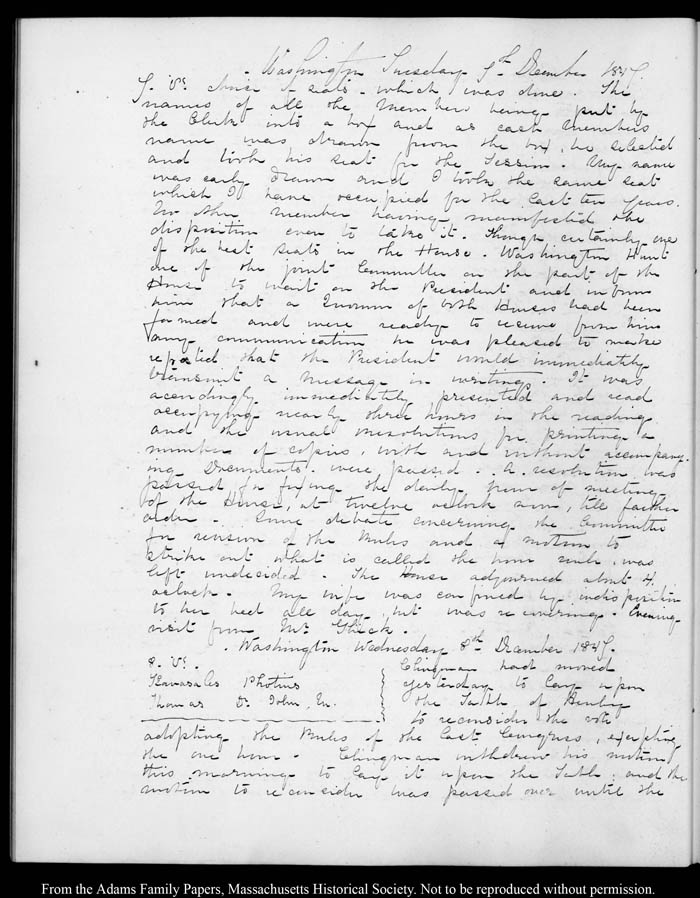 Washington Tuesday 7th December 1847.
7. V. choice of seats - which was done. The
names of all the Members being put by
the Clerk into a box and as each Members
name was drawn from the box, he selected
and took his seat for the Session. My name
was early drawn and I took the same seat
which I have occupied for the last ten years.
No other member having manifested the
disposition even to take it. Though certainly one
of the best seats in the House. Washington Hunt
one of the joint Committee on the part of the
House to wait on the President and inform
him that a Quorum of both Houses had been
formed and were ready to receive from him
any communication he was pleased to make
reported that the President would immediately
transmit a message in writing. It was
accordingly immediately presented and read
occupying nearly three hours in the reading
and the usual resolutions for printing a
number of copies, with and without accompany-
ing Documents were passed. A resolution was
passed for fixing the daily hour of meeting
of the House, at twelve o'clock noon, till further
order. Some debate concerning the Committee
for revision of the Rules and a motion to
strike out what is called the hour rule, was
left undecided. The House adjourned about 4
o'clock. My wife was confined by indisposition
to her bed all day, but was recovering. Evening
visit from Mr
Washington Wednesday 8th December 1847.
8. V.
Kavasales Photius
Thomas D. John, M.
Clingman had moved
yesterday to lay upon
the Table
to reconsider the vote
adopting the Rules of the last Congress, excepting
the one hour. Clingman withdrew his motion
this morning to lay it upon the Table, and the
motion to reconsider was passed over until the
From the Adams Family Papers, Massachusetts Historical Society. Not to be reproduced without permission.